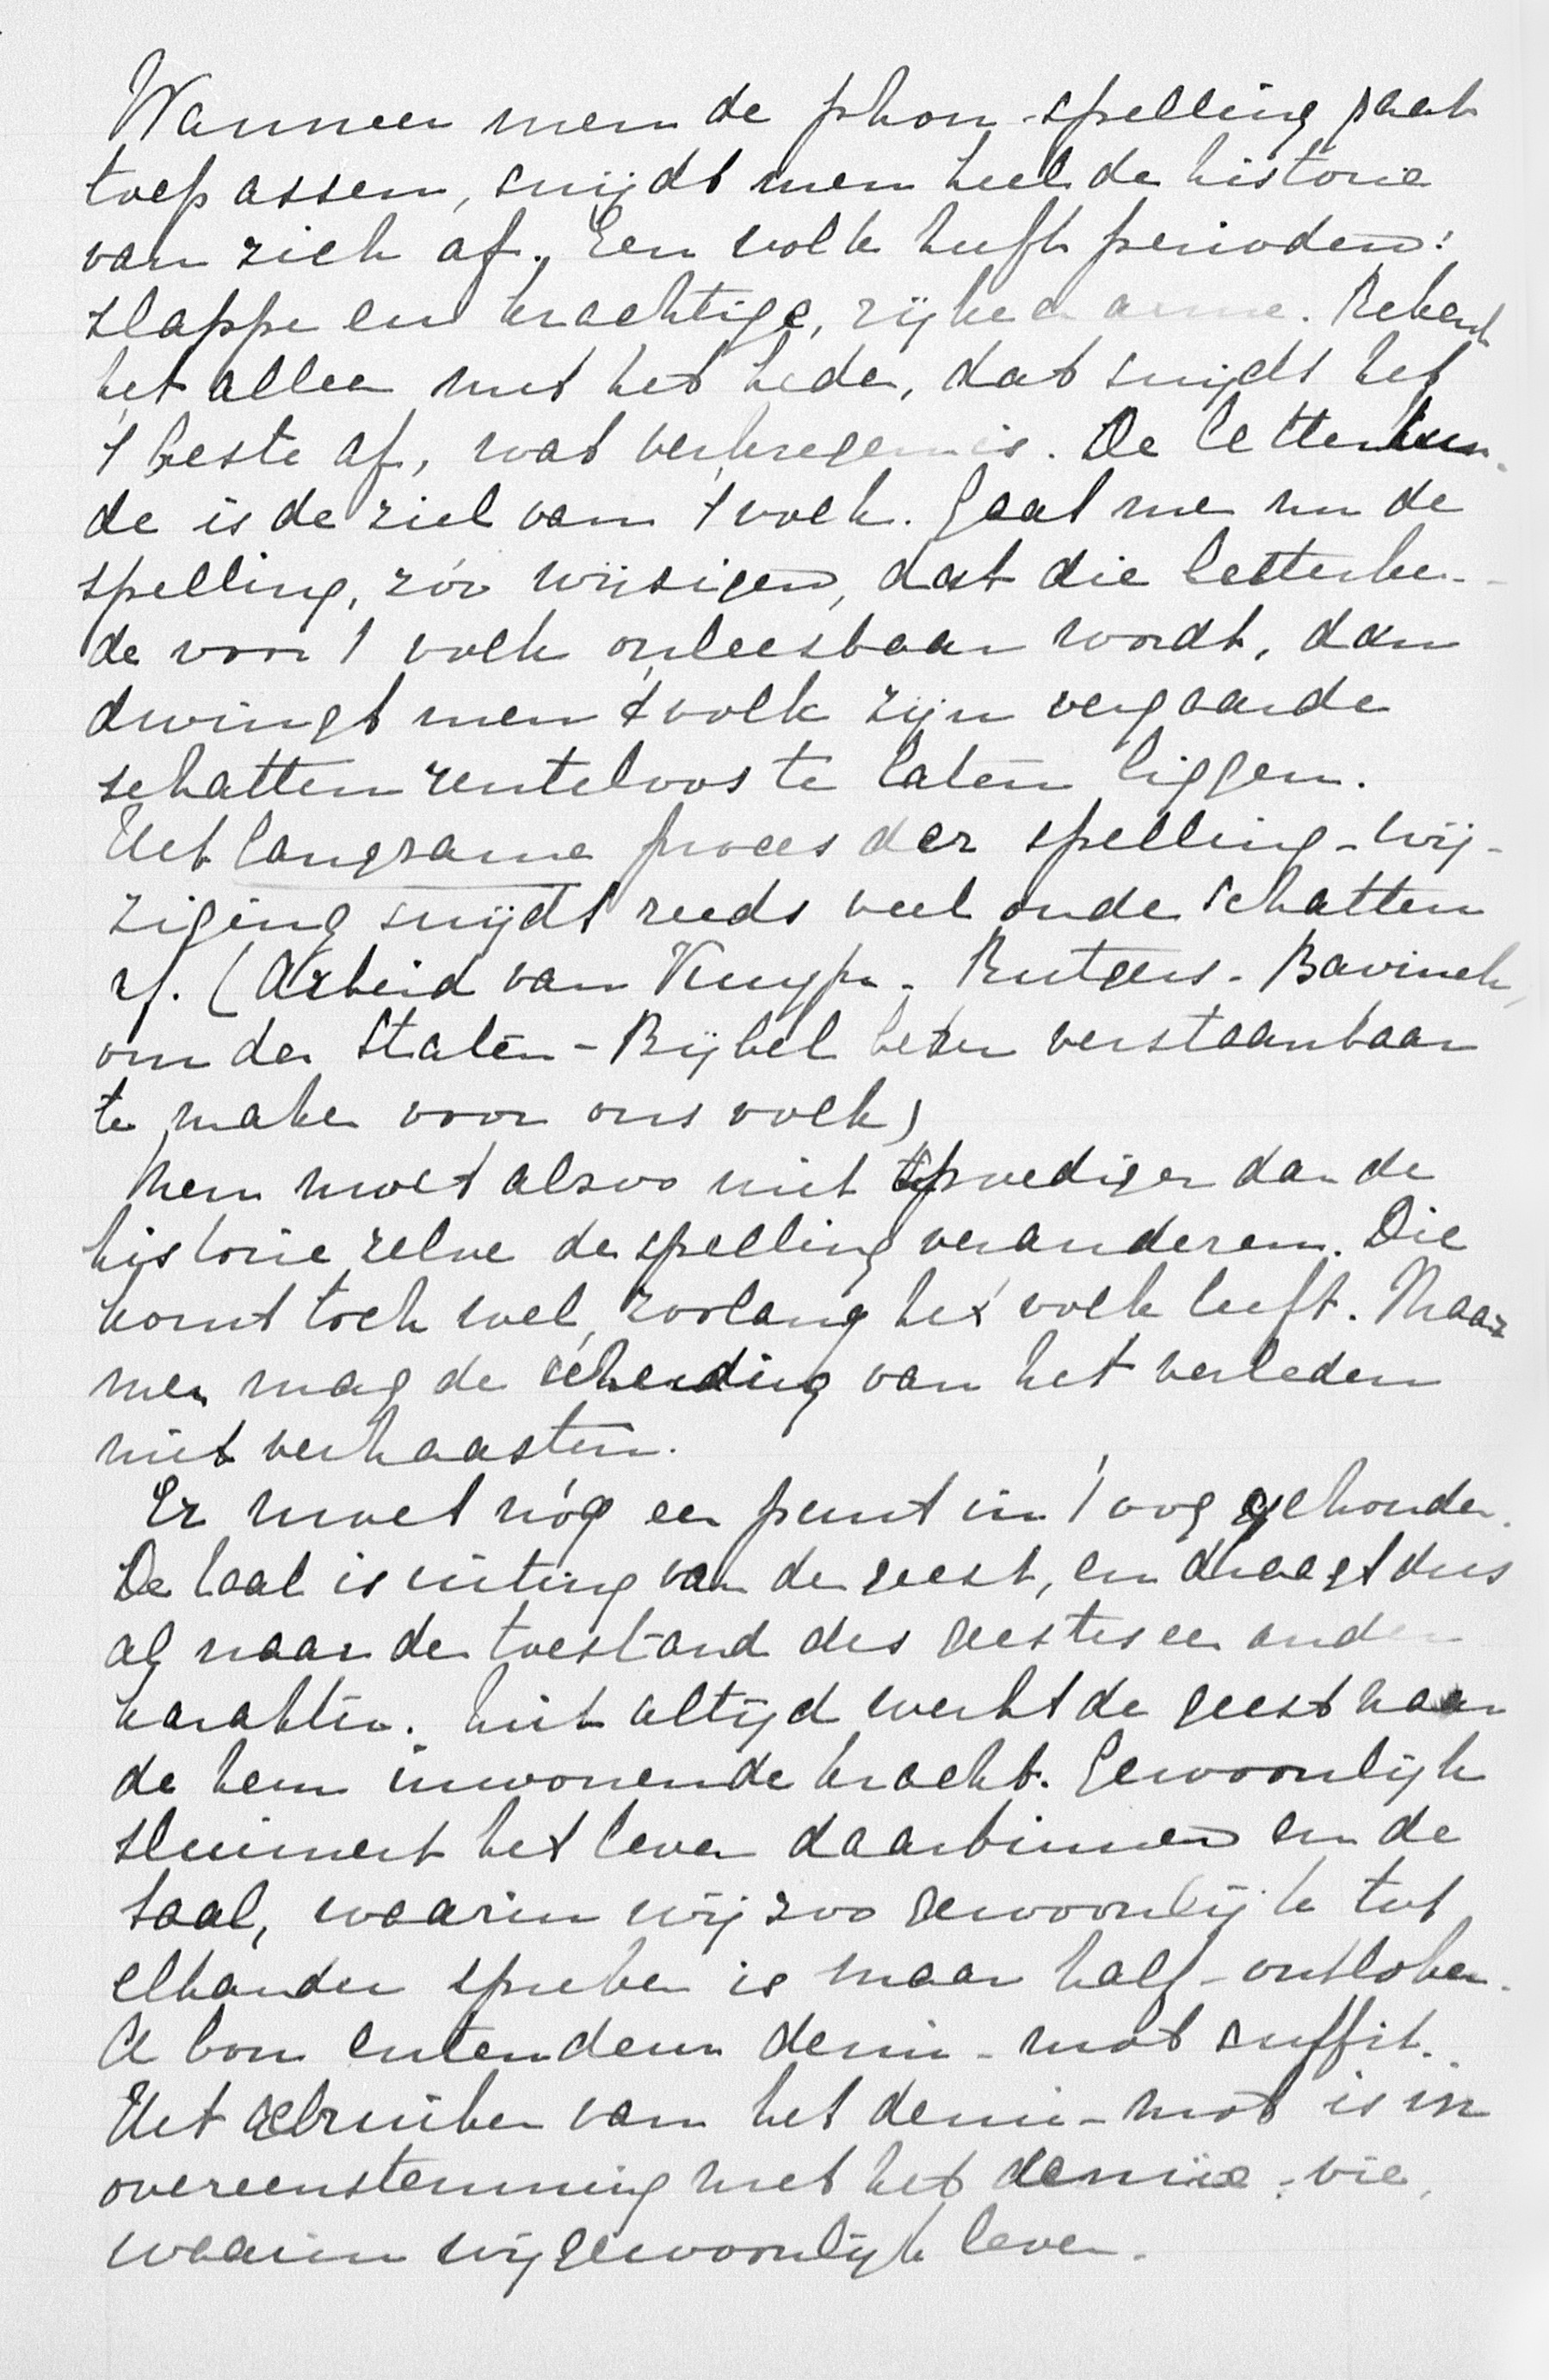 Wanneer men de phon-spelling gaat
toepassen, snijdt men heel de historie
van zich af. Een volk heeft perioden:
slappe en krachtige, rijke en arme. Rekent
het alleen met het heden, dat snijdt het
't beste af, wat verkregen is. De letterkun-
de is de ziel van 't volk. Gaat men nu de
spelling, zóó wijzigen, dat die letterkun-
de voor 't volk onleesbaar wordt, dan
dwingt men 't volk zijn vergaarde
schatten renteloos te laten liggen.
Het langzame proces der spelling-wij-
ziging snijdt reeds veel oude schatten
af. (Arbeid van Kuyper - Rutgers - Bavinck,
om den Staten-Bijbel beter verstaanbaar
te maken voor ons volk)
Men moet alzoo niet spoediger dan de
historie zelve de spelling veranderen. Die
komt toch wel, zoolang het volk leeft. Maar
men mag de scheiding van het verleden
niet verhaasten.
Er moet nóg een punt in 't oog gehouden.
De taal is uiting van den geest, en draagt dus
al naar den toestand des geestes een ander
karakter. Niet altijd werkt de geest naar
de hem inwonende kracht. Gewoonlijk
sluimert het leven daarbinnen en de
taal, waarin wij zoo gewoonlijk tot
elkander spreken is maar half-ontloken.
A bon entendeur demi-mot suffit.
Het gebruiken van het demi-mot is in
overeenstemming met het demie-vie,
waarin wij gewoonlijk leven.